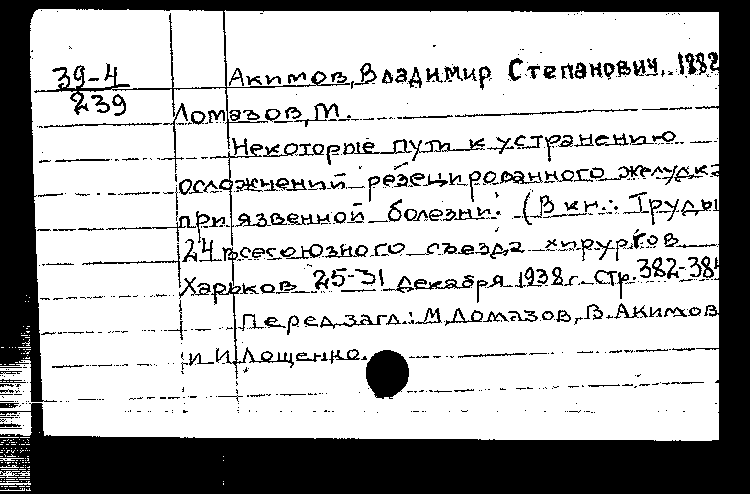 39-4
239
Акимов, Владимир Степанович, 1882
Ломазов, М.
Некоторые пути к устранению
осложнений резецированного желудка
при язвенной болезни. (В кн.: Труды
24 всесоюзного съезда хирургов.
Харьков 25-31 декабря 1938 г. Стр. 382-384
Перед загл.: М. Ломазов, В. Акимов
и И. Лощенко.